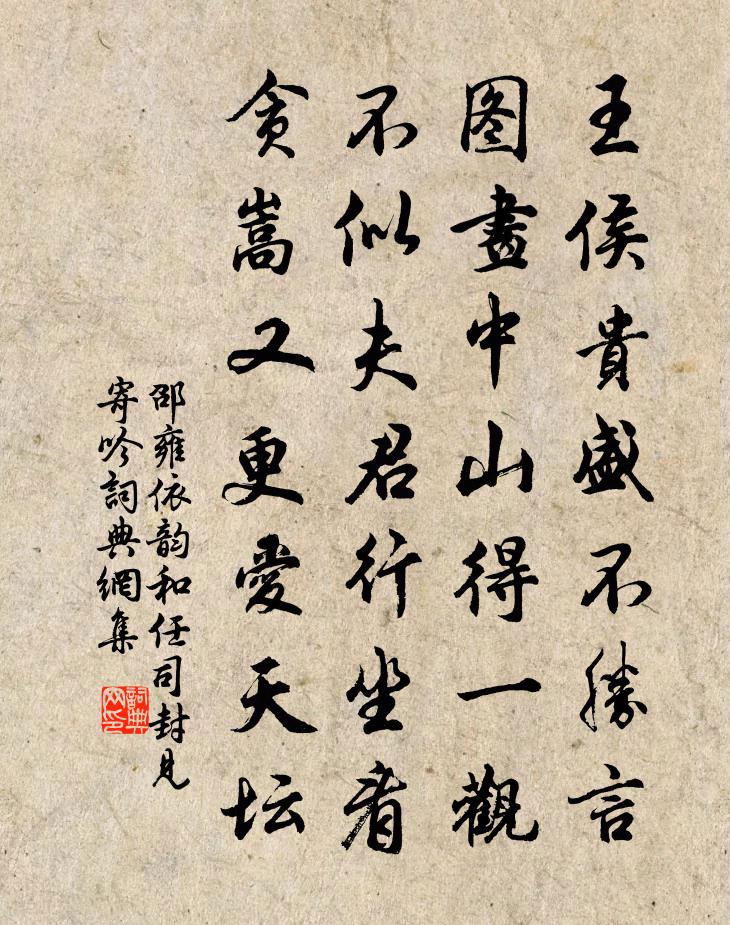 王侯貴盛不勝言
图畫中山得一觀
不似夫君行坐看
贪嵩又更愛天坛
邵雍依韵和任司封見
寄吟詞典網集
詞典网印